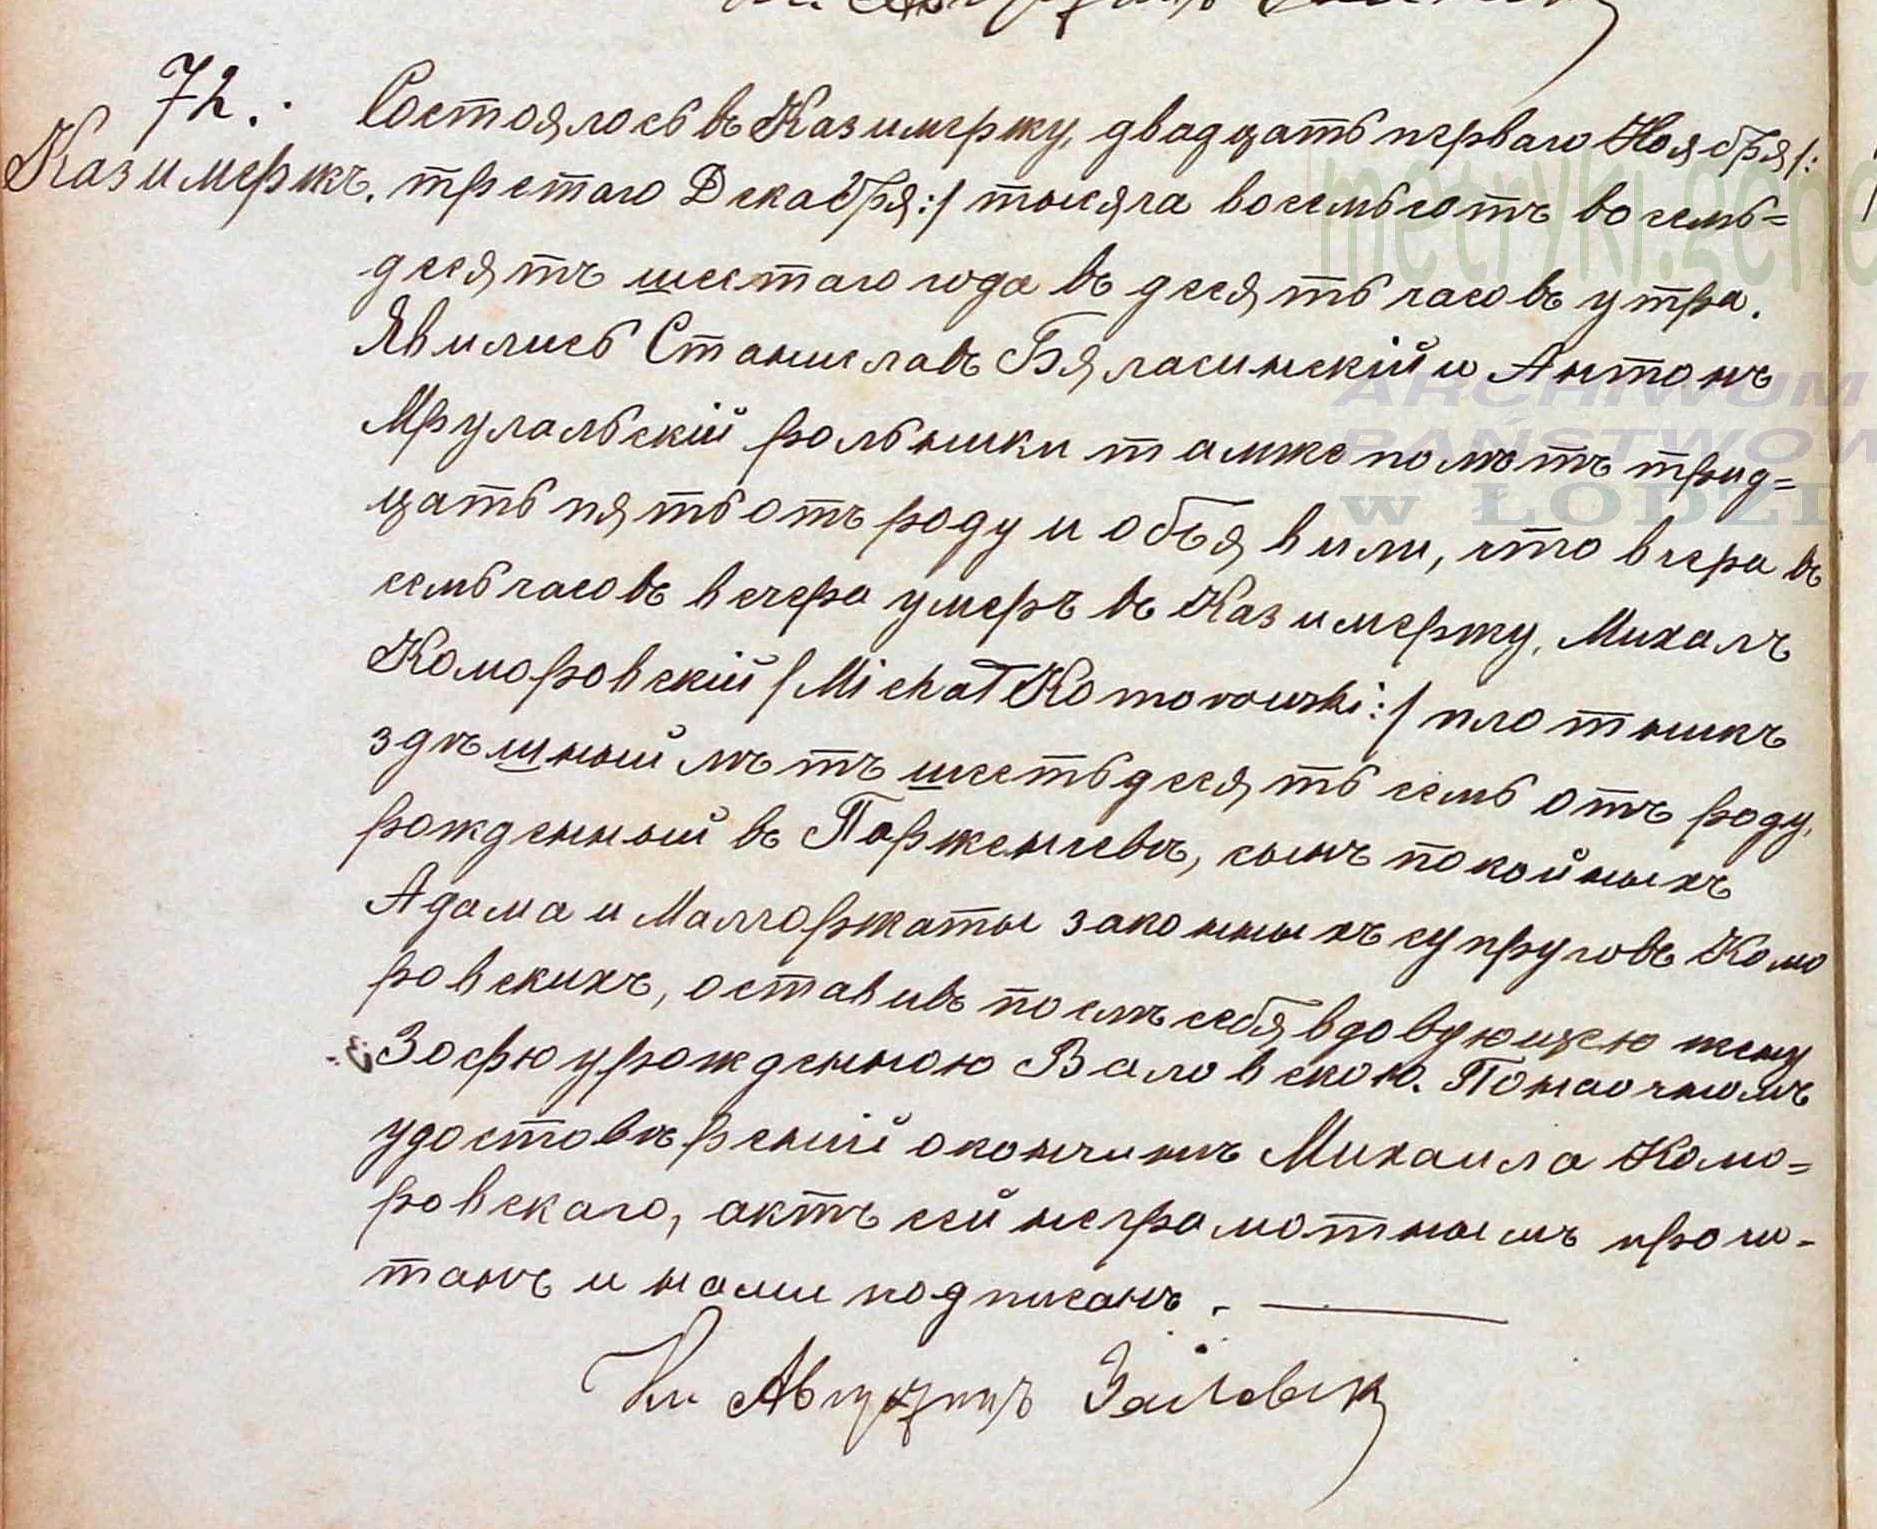 72.
Казимержъ.
Состоялось въ Казимержу, двадцать перваго Ноября /:
третьяго Декабря :/ тысяча восемьсотъ восемь=
десятъ шестаго года въ десять часовъ утра.
Явились Станиславъ Бяласинскій и Антонъ
скій рольники тамже по лѣтъ трид=
цать пять отъ роду и объявили, что вчера въ
семь часовъ вечера умеръ въ Казимержу, Михалъ
Коморовскій /Michał Komorowski :/ плотникъ
здѣшный лѣтъ шестьдесять семь отъ роду,
рожденный въ сынъ покойныхъ
Адама и Малгоржаты законныхъ супруговъ Комо
ровскихъ, оставивъ послѣ себя вдовующею жену
Зофію урожденною Валовскою. По наочномъ
удостовѣреніи о кончинѣ Михаила Комо=
ровскаго, актъ сей неграмотнымъ прочи-
танъ и нами подписанъ.
metryki.gene
ARCHIWUM
PAŃSTWOW
w ŁODZI